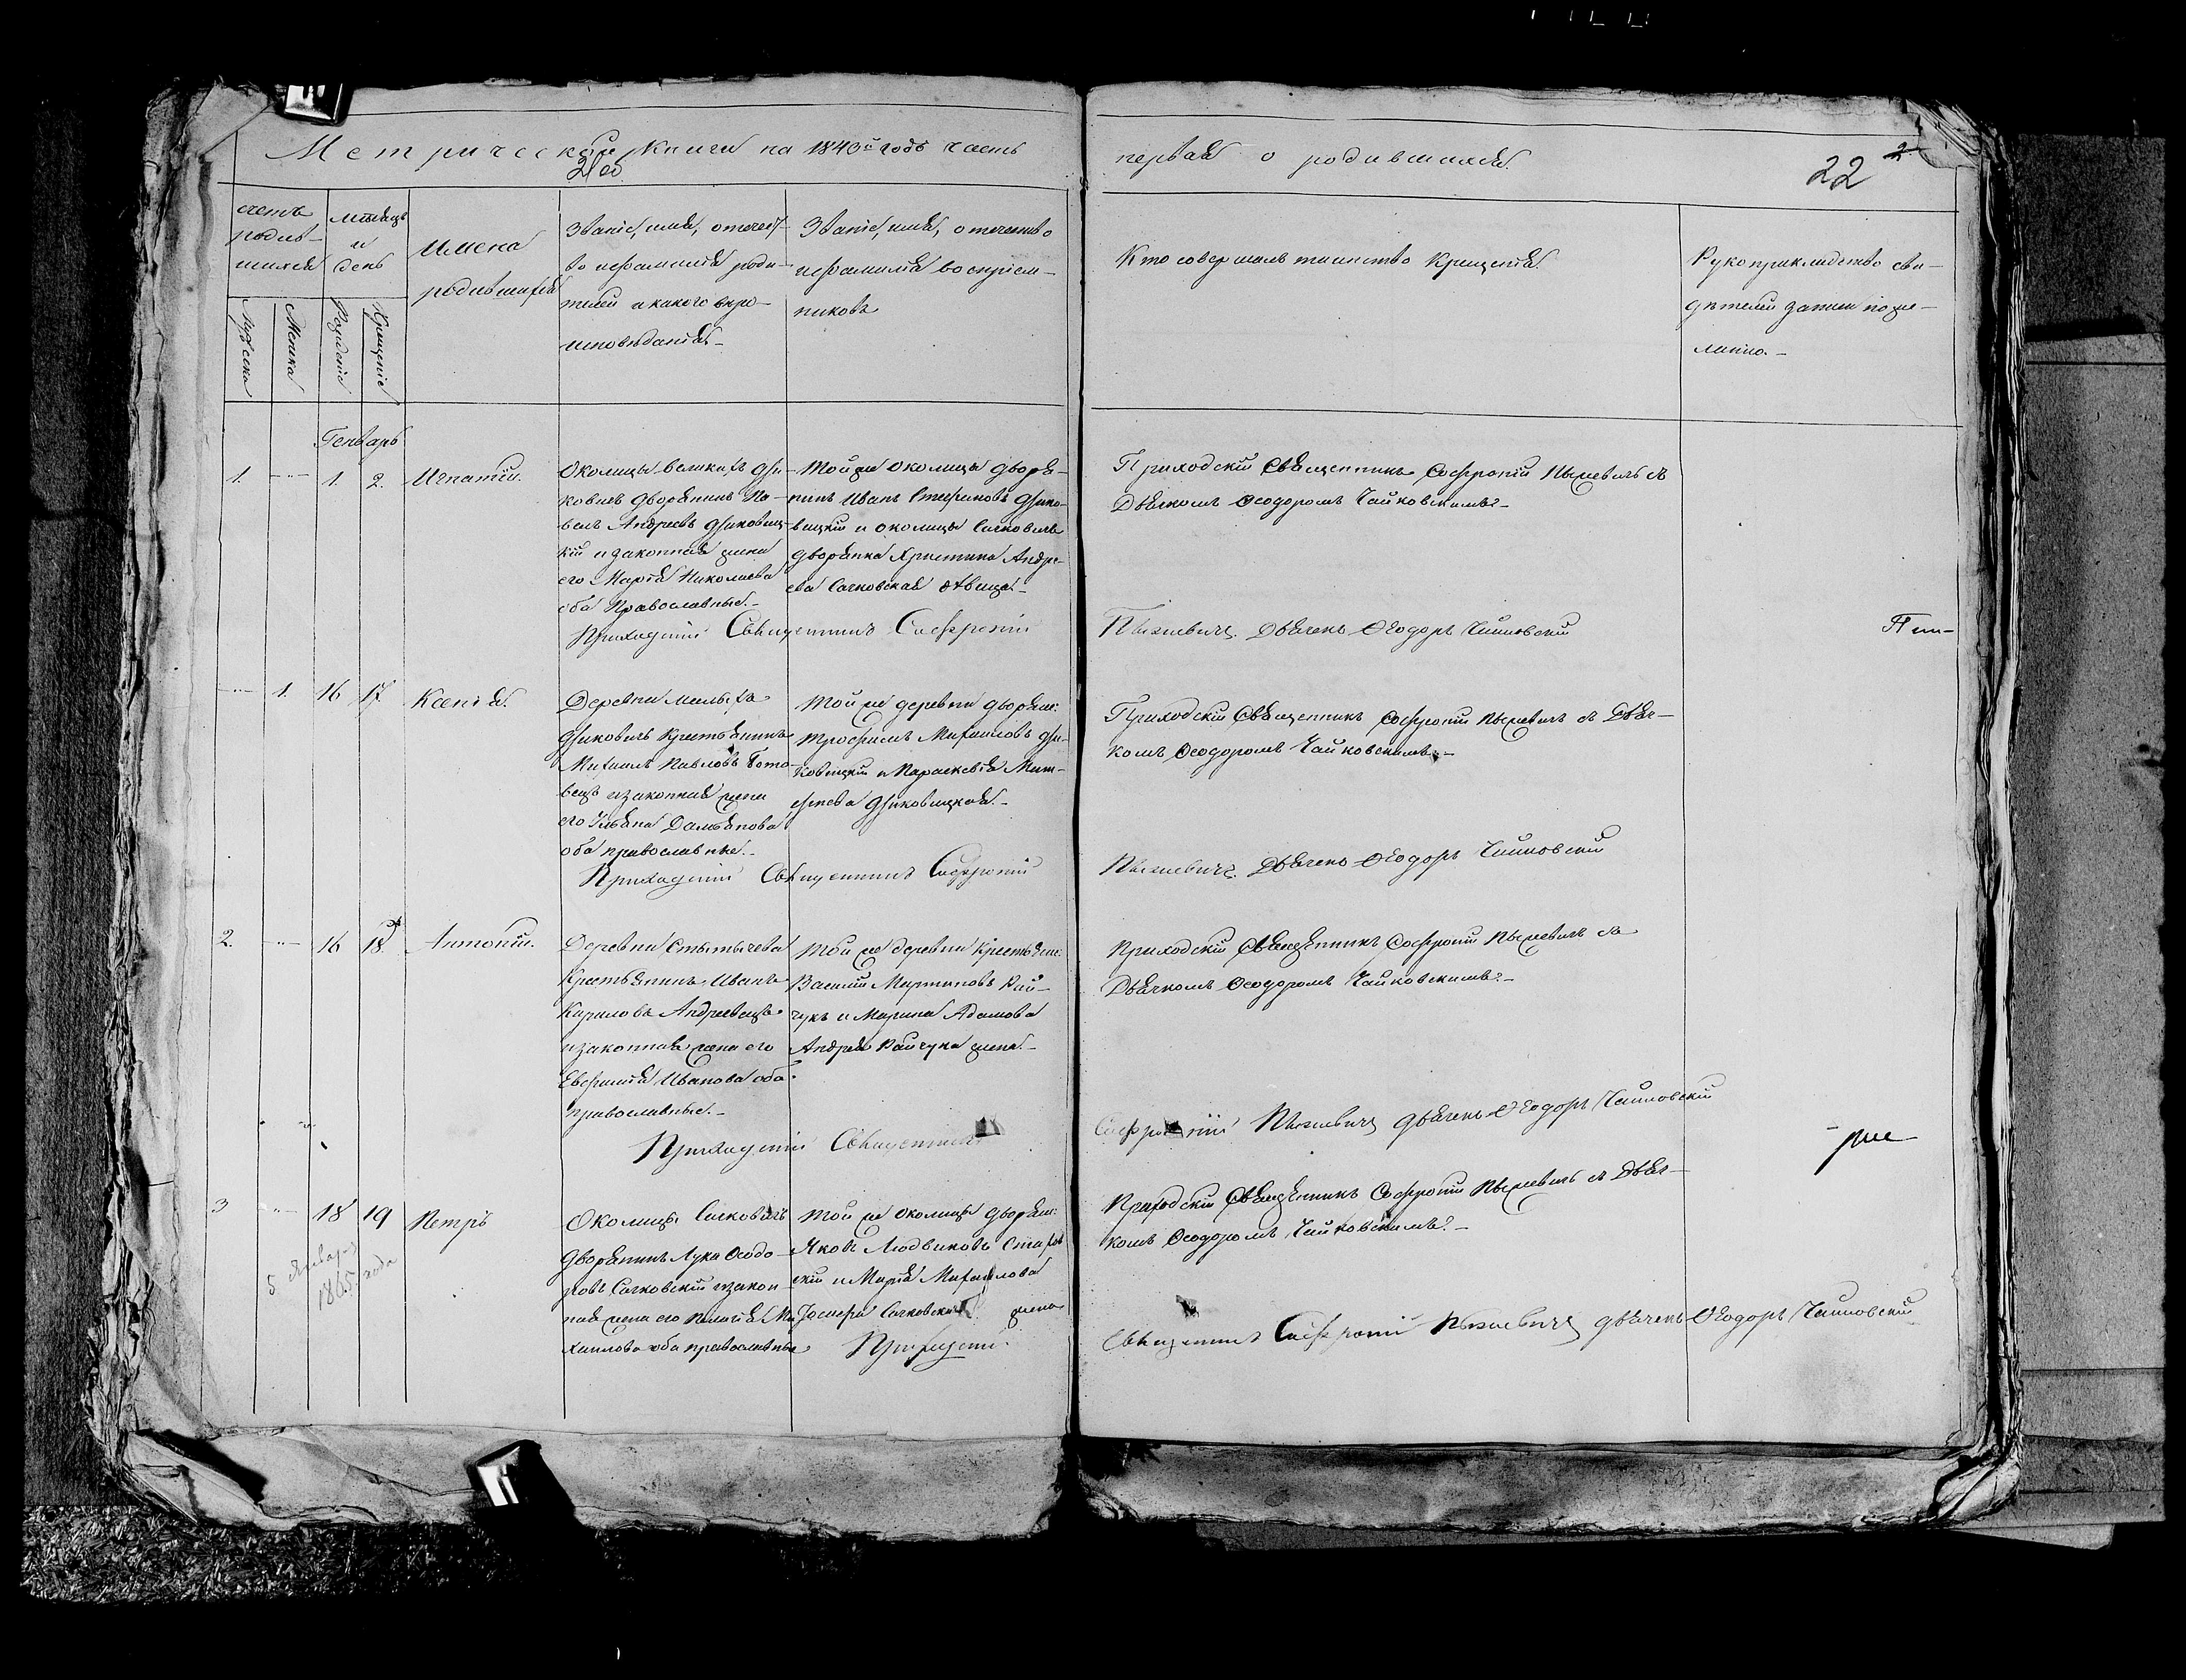 Метрической книги на 1840й годъ часть
первая о родившихся.
22 2.
счетъ родив-
шихся
Мужеска
Женска
мѣсяцъ
и
день
Рожденіе
Крещеніе
Имена
родившихся
Званіе, имя, отечест-
во и фамилія роди-
телей и какого вѣро-
исповѣданія.-
Званіе, имя, отечество
и фамилія воспріем-
никовъ
Кто совершалъ таинство Крещенія.
Рукоприкладство сви-
дѣтелей записи по же-
ланію.-
Генварь
1. 1. 2. Игнатій.
Околицы Великихъ Дзи-
ковичъ дворянинъ Па-
велъ Андреевъ Дзиковиц-
кій и законная жена
его Марія Николаева
оба Православные.-
Той же околицы дворя-
нинъ Иванъ Стефановъ Дзико-
вицкій и околицы Сачковичъ
дворянка Христина Андре-
ева Сачковская дѣвица.-
Приходскій Священникъ Софроній Пыжевичъ съ
Дьячкомъ Ѳеодоромъ Чайковскимъ.-
Приходскій Священникъ Софроній Пыжевичъ. Дьячекъ Ѳеодоръ Чайковскій
1. 16 17. Ксенія.
Деревни Малыхъ
Дзиковичъ Крестьянинъ
Михаилъ Павловъ
и законная жена
его Ульяна Дамьянова
оба православные.-
Той же деревни дворян:
Трофимъ Михайловъ Дзи-
ковицкій и Параскевія Мат-
фѣева Дзиковицкая.-
Приходскій Священникъ Софроній Пыжевичъ съ Дьяч-
комъ Ѳеодоромъ Чайковскимъ.-
Приходскій Священникъ Софроній Пыжевичъ. Дьячекъ Ѳеодоръ Чайковскій
2. 16 18. Антоній.
Деревни Стытычева
Крестьянинъ Иванъ
Кириловъ Андреевецъ
и законная жена его
Евфимія Иванова оба
православные.-
Той же деревни Крестьян:
Василій Мартиновъ Кай-
чукъ и Марина Адамова
Андрея Кайчука жена.-
Приходскій Священникъ Софроній Пыжевичъ съ
Дьячкомъ Ѳеодоромъ Чайковскимъ.-
Приходскій Священникъ Софроній Пыжевичъ Дьячекъ Ѳеодоръ Чайковскій
3 18 19 Петръ
5 Января
1865 года
Околицы Сачковичъ
дворянинъ Лука Ѳеодо-
ровъ Сачковскій и закон-
ная жена его Пелагія Ми-
хайлова оба православные
Той же околицы дворян:
Яковъ Людвиковъ
и Марія Михайлова
Іосифа Сачковскаго жена
Приходскій Священникъ Софроній Пыжевичъ съ Дьяч-
комъ Ѳеодоромъ Чайковскимъ.-
Приходскій Священникъ Софроній Пыжевичъ Дьячекъ Ѳеодоръ Чайковскій